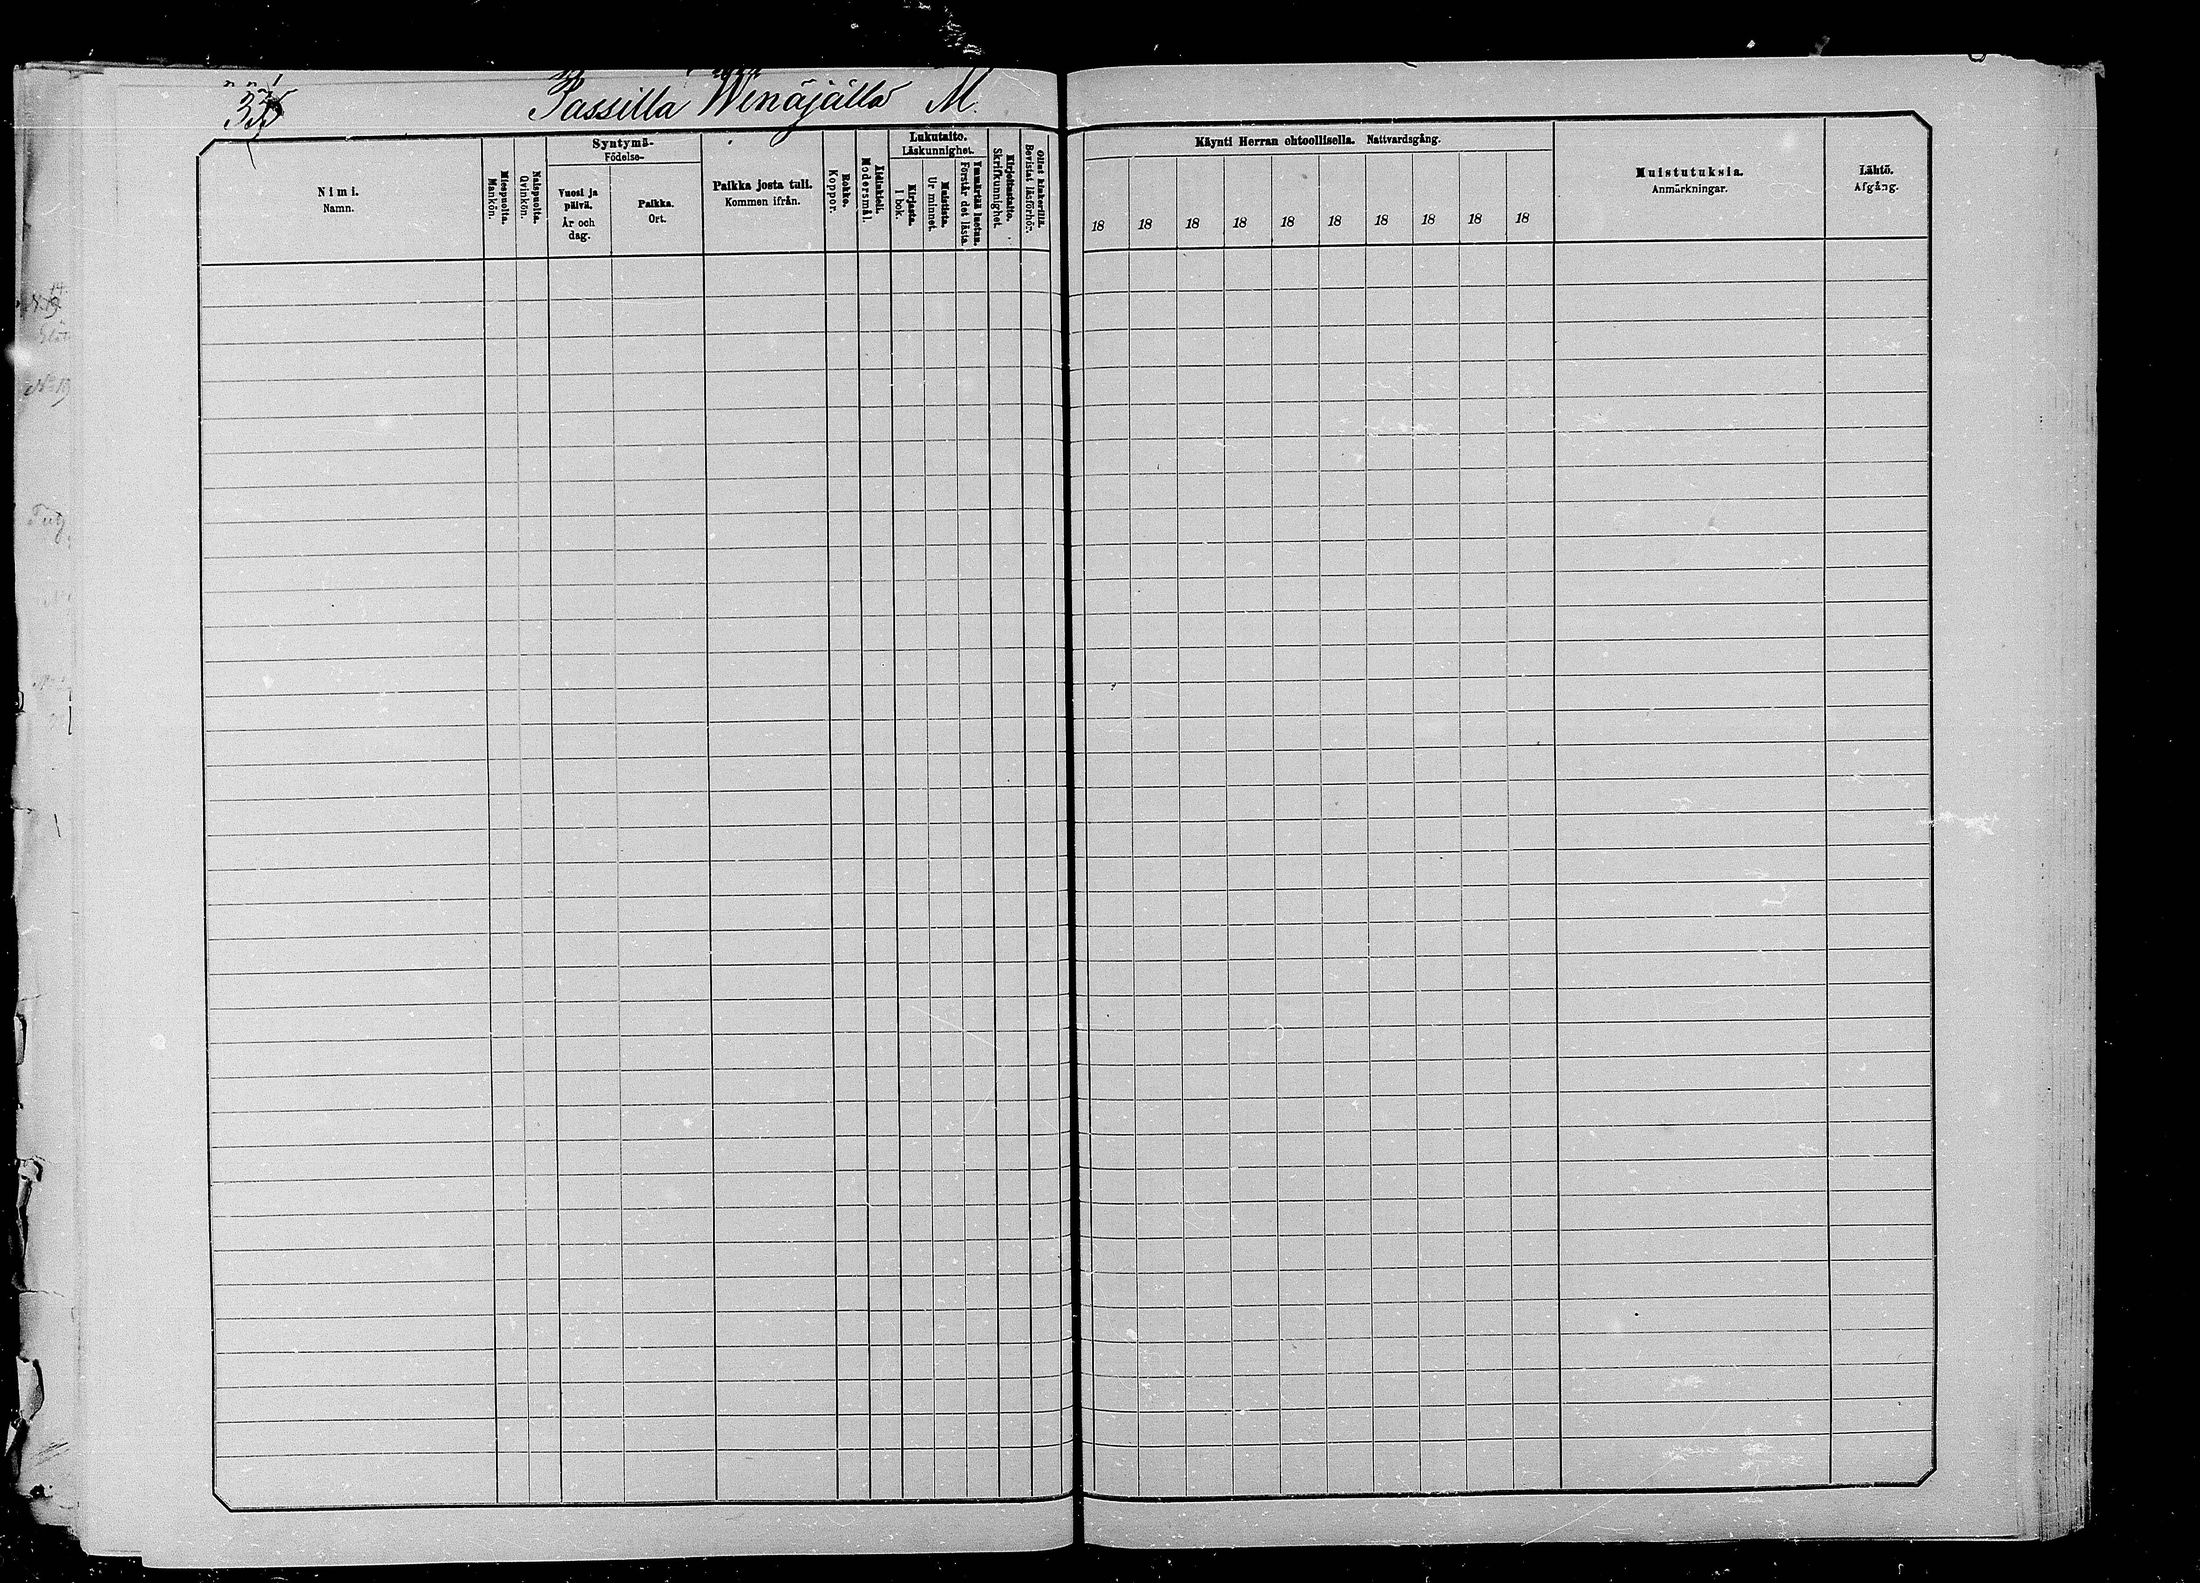 Passilla Wenäjällä M.
Nimi.
Namn.
Miespuolta.
Mankön.
Naispuolta.
Qvinkön.
Syntymä-
Födelse-
Vuosi ja päivä.
År och dag.
Paikka.
Ort.
Paikka josta tuli.
Kommen ifrån.
Rokko.
Koppor.
Äidinkieli.
Modersmål.
Lukutaito.
Läskunnighet.
Kirjasta.
I bok.
Muistista.
Ur minnet.
Ymmärtää luetun.
Förstår det lästa.
Kirjoitustaito.
Skrifkunnighet.
Ollut kinkerillä.
Bevistat läsförhör.
Käynti Herran ehtoollisella. Nattvardsgång.
18 18 18 18 18 18 18 18 18 18
Muistutuksia.
Anmärkningar.
Lähtö.
Afgång.